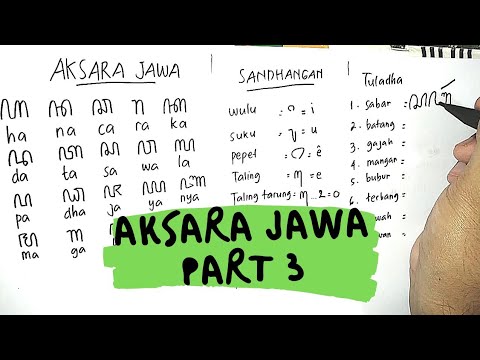 AKSARA JAWA
ꦲ ꦤ ꦕ ꦫ ꦏ
ha na ca ra ka
ꦢ ꦠ ꦱ ꦮ ꦭ
da ta sa wa la
ꦥ ꦝ ꦗ ꦪ ꦚ
pa dha ja ya nya
ꦩ ꦒ
ma ga
SANDHANGAN
wulu = ꦶ = i
suku = ꦸ = u
pepet = ꦼ = ê
Taling = ꦺ = e
Taling tarung = ꦺ...ꦴ = o
Tuladha
1. sabar = ꦱꦧꦂ
2. batang =
3. gajah =
4. mangan =
5. bubur =
6. terbang =
AKSARA JAWA
PART 3